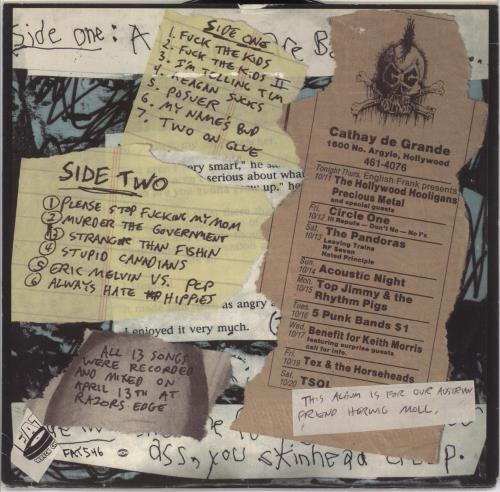 Side one: A
Ba
SIDE ONE
1. FUCK THE KIDS
2. FUCK THE KIDS II
3. I'M TELLING TIM
4. REAGAN SUCKS
5. POSUER
6. MY NAME'S BUD
7. TWO ON GLUE
ery smart," he s
serious about what
ow up," he
SIDE TWO
1 PLEASE STOP FUCKING MY MOM
2 MURDER THE GOVERNMENT
3 STRANGER THAN FISHIN
4 STUPID CANADIANS
5 ERIC MELVIN VS. PCP
6 ALWAYS HATE HIPPIES
as angry a
enjoyed it very much.
ALL 13 SONGS
WERE RECORDED
AND MIXED ON
APRIL 13TH AT
RAZORS EDGE
Cathay de Grande
1600 No. Argyle, Hollywood
461-4076
Tonight Thurs. English Frank presents
10/11 The Hollywood Hooligans
Precious Metal
and special guests
Fri. 10/12 Circle One
Ill Repute — Don't No — No F's
Sat. 10/13 The Pandoras
Leaving Trains
NF Seven
Hated Principle
Sun. 10/14 Acoustic Night
Mon. 10/15 Top Jimmy & the
Rhythm Pigs
Tues. 10/16 5 Punk Bands $1
Wed. 10/17 Benefit for Keith Morris
featuring surprise guests
call for info.
Fri. 10/19 Tex & the Horseheads
Sat. 10/20 TSOL
THIS ALBUM IS FOR OUR AUSTRIAN
FRIEND HERWIG MOLL.
FAT
FAT546
ass, you skinhead creep.